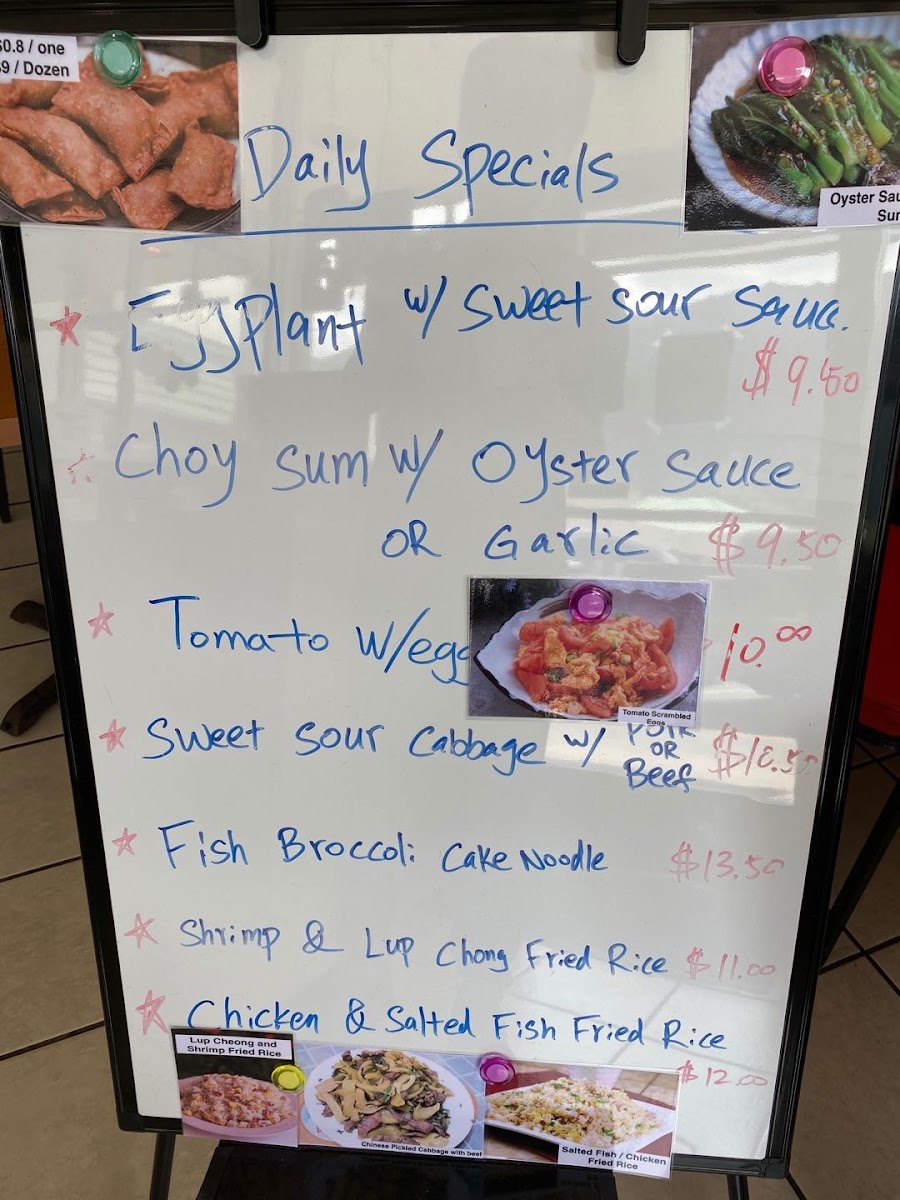 $0.8 / one
$9 / Dozen
Daily Specials
Oyster Sau
Sum
Eggplant w/ Sweet sour Sauce.
$9.50
Choy Sum w/ Oyster Sauce
OR Garlic $9.50
Tomato w/egg 10.00
Tomato Scrambled
Eggs
Sweet Sour Cabbage w/ Pork
OR
Beef
Fish Broccoli Cake Noodle $13.50
Shrimp & Lup Chong Fried Rice $11.00
Chicken & Salted Fish Fried Rice
$12.00
Lup Cheong and
Shrimp Fried Rice
Chinese Pickled Cabbage with beef
Salted Fish / Chicken
Fried Rice